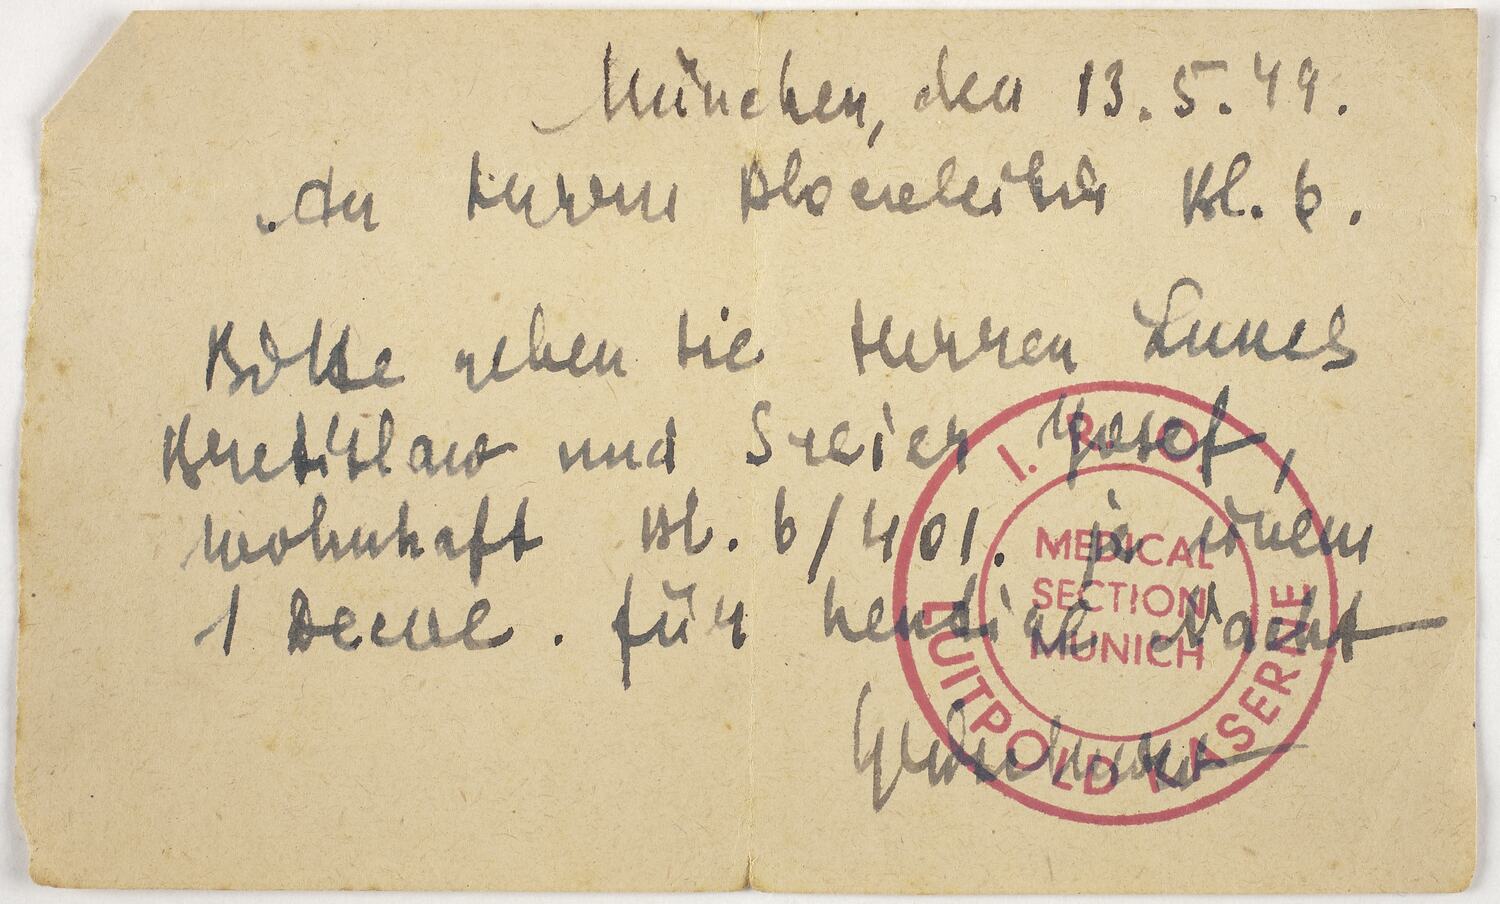 München, den 13.5.49.
An Herrn Blockleiter Bl. 6.
Bitte geben Sie Herren Lukes
Bretislaw und Sreier Josef,
wohnhaft Bl. 6/401. je einem
1 Decke. für heutige Nacht
I. R. O.
MEDICAL
SECTION
MUNICH
LUITPOLD KASERNE